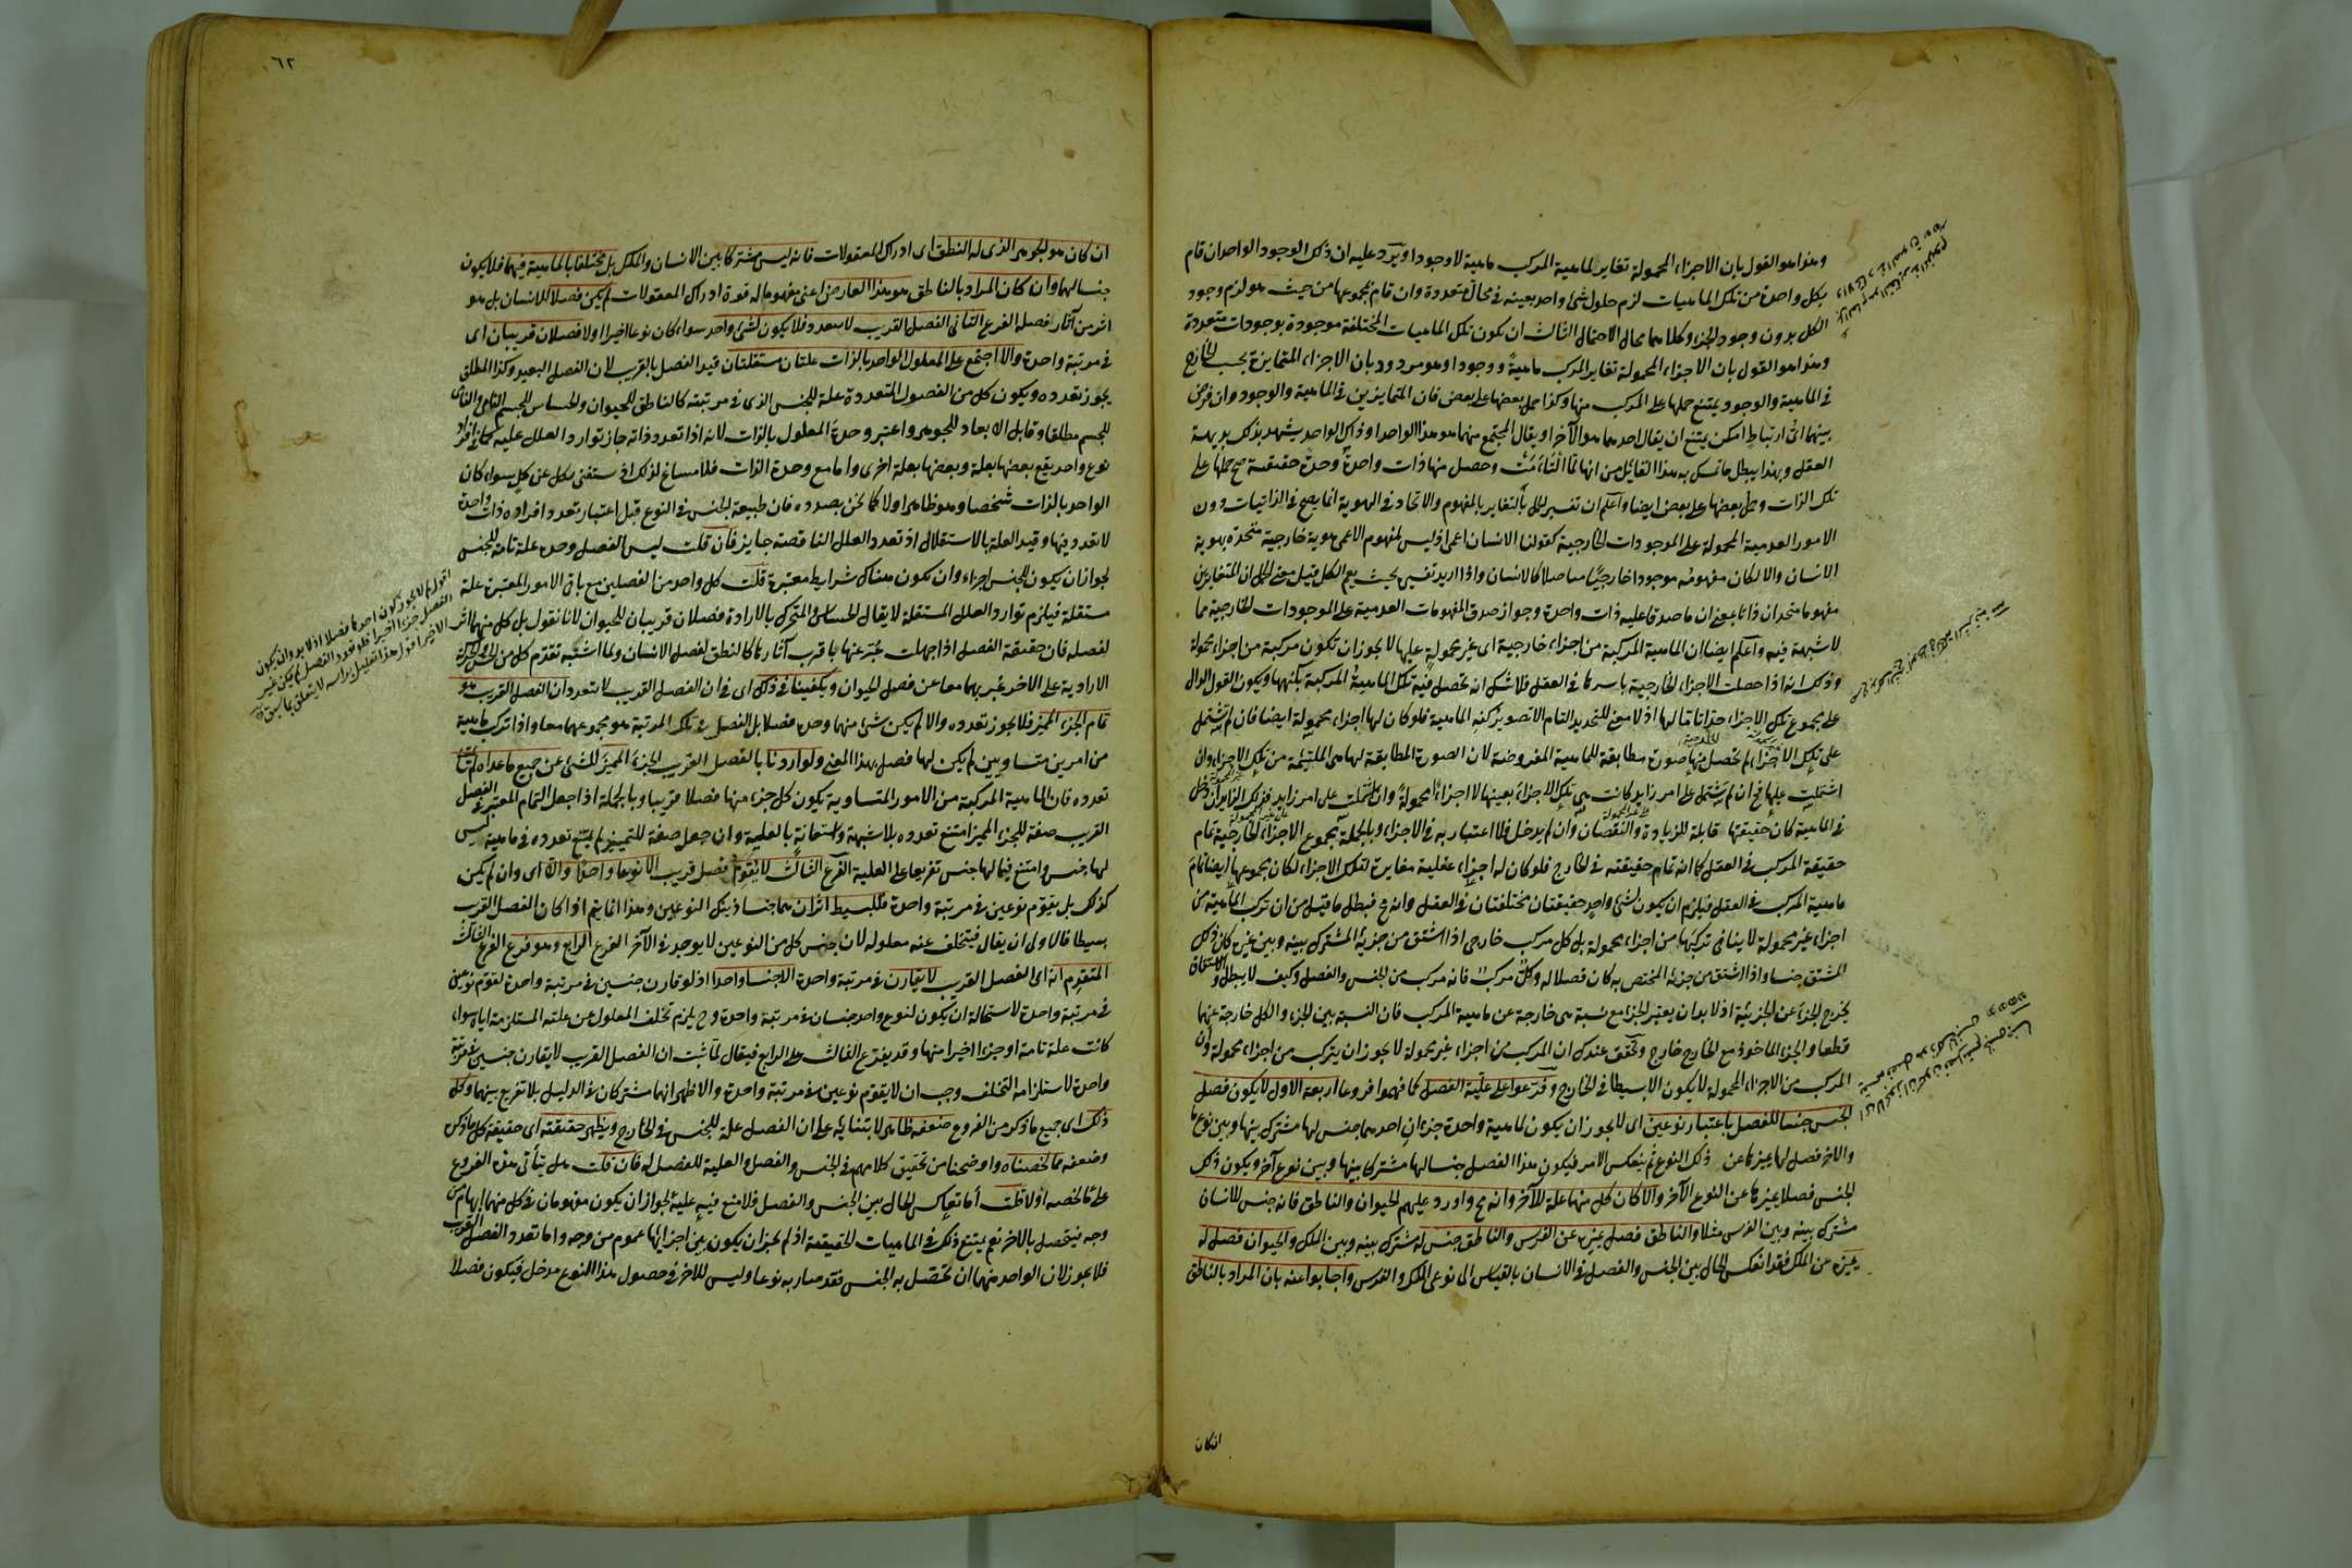 وهذا هو القول بان الاجزاء المحمولة تغاير لماهية المركب ماهية لا وجودا ويرد عليه ان ذلك الوجود الواحد ان قام
بكل واحدة من تلك الماهيات لزم حلول شئ واحد بعينه في محال متعددة وان قام بمجموعها من حيث هو لزم وجود
الكل بدون وجود الجزء وكلاهما محال الاحتمال الثالث ان يكون تلك الماهيات المختلفة موجودة بوجودات متعددة
وهذا هو القول بان الاجزاء المحمولة تغاير المركب ماهية ووجودا وهو مردود بان الاجزاء المتمايزة بحسب الخارج
في الماهية والوجود يمتنع حملها على المركب منها وكذا حمل بعضها على بعض فان المتمايزين في الماهية والوجود وان فرض
بينهما اي ارتباط امكن يمتنع ان يقال احدهما هو الآخر او يقال المجتمع منهما هو هذا الواحد او ذاك الواحد يشهد بذلك بديهة
العقل وبهذا يبطل ما تمسك به هذا القائل من انها لما التأمت وحصل منها ذات واحدة وحدة حقيقية صح حملها على
تلك الذات وحمل بعضها على بعض ايضا واعلم ان تفسير الحمل بالتغاير بالمفهوم والاتحاد في الهوية انما يصح في الذاتيات دون
الامور العدمية المحمولة على الموجودات الخارجية كقولنا الانسان اعمى اذ ليس لمفهوم الاعمى هوية خارجية متحدة بهوية
الانسان والا لكان مفهومه موجودا خارجيا متاصلا كالانسان واذا اريد تفسيره بحيث يعم الكل قيل معنى الحمل ان المتغايرين
مفهوما متحدان ذاتا بمعنى ان ما صدقا عليه ذات واحدة وجواز صدق المفهومات العدمية على الموجودات الخارجية مما
لا شبهة فيه واعلم ايضا ان الماهية المركبة من اجزاء خارجية اي غير محمولة عليها لا يجوز ان تكون مركبة من اجزاء محمولة
وذلك انه اذا حصلت الاجزاء الخارجية باسرها في العقل فلا شك انه تحصل فيه تلك الماهية المركبة بكنهها ويكون القول الدال
على مجموع تلك الاجزاء حدا تاما لها اذ لا معنى للتحديد التام الا تصوير كنه الماهية فلو كان لها اجزاء محمولة ايضا فان لم تشتمل
على تلك الاجزاء لم تحصل منها صورة مطابقة للماهية المفروضة لان الصورة المطابقة لها هي الملتئمة من تلك الاجزاء وان
اشتملت عليها فح ان لم تشتمل على امر زايد كانت هي تلك الاجزاء بعينها لا اجزاء محمولة وان اشتملت على امر زايد فذلك الزايد ان دخل
في الماهية كان حقيقتها قابلة للزيادة والنقصان وان لم يدخل فلا اعتبار به في الاجزاء وبالجملة مجموع الاجزاء الخارجية تمام
حقيقة المركب في العقل كما انه تمام حقيقته في الخارج فلو كان له اجزاء عقلية مغايرة لتلك الاجزاء لكان مجموعها ايضا تمام
ماهية المركب في العقل فيلزم ان يكون لشئ واحد حقيقتان مختلفتان في العقل وانه مح فبطل ما قيل من ان تركب الماهية من
اجزاء غير محمولة لا ينافي تركبها من اجزاء محمولة بل كل مركب خارجي اذا اشتق من جزئه المشترك بينه وبين غيره كان ذلك
المشتق جنسا واذا اشتق من جزئه المختص به كان فصلا له وكل مركب فانه مركب من الجنس والفصل وكيف لا يبطل والاشتقاق
يخرج الجزء عن الجزئية اذ لا بد ان يعتبر الجزء مع نسبة هي خارجة عن ماهية المركب فان النسبة بين الجزء والكل خارجة عنهما
قطعا والجزء الماخوذ مع الخارج خارج وتحقق عندك ان المركب من اجزاء غير محمولة لا يجوز ان يتركب من اجزاء محمولة وان
المركب من الاجزاء المحمولة لا يكون الا بسيطا في الخارج وفرعوا على علية الفصل كما فهموا فروعا اربعة الاول لا يكون فصل
الجنس جنسا للفصل باعتبار نوعين اي لا يجوز ان يكون لماهية واحدة جزءان احدهما جنس لها مشترك بينها وبين نوع ما
والاخر فصل لها يميزها عن ذلك النوع ثم ينعكس الامر فيكون هذا الفصل جنسا لها مشتركا بينها وبين نوع آخر ويكون ذلك
الجنس فصلا يميزها عن النوع الآخر والا لكان كل منهما علة للآخر وانه مح واورد عليهم الحيوان والناطق فانه جنس للانسان
مشترك بينه وبين الفرس مثلا والناطق فصل يميزه عن الفرس والناطق جنس له مشترك بينه وبين الملك والحيوان فصل له
يميزه عن الملك فقد انعكس الحال بين الجنس والفصل في الانسان بالقياس الى نوعي الملك والفرس واجابوا عنه بان المراد بالناطق
انكان
٦٢
ان كان هو الجوهر الذي له النطق اي ادراك المعقولات فانه ليس مشتركا بين الانسان والملك بل مختلفا بالماهية فيهما فلا يكون
جنسا لهما وان كان المراد بالناطق هو هذا العارض اعني مفهوم ما له قوة ادراك المعقولات لم يكن فصلا للانسان بل هو
اثر من آثار فصله الفرع الثاني الفصل القريب لا يتعدد فلا يكون لشئ واحد سواء كان نوعا اخيرا اولا فصلان قريبان اي
في مرتبة واحدة والا اجتمع على المعلول الواحد بالذات علتان مستقلتان قيد الفصل بالقريب لان الفصل البعيد وكذا المطلق
يجوز تعدده ويكون كل من الفصول المتعددة علة للجنس الذي في مرتبته كالناطق للحيوان والحساس للجسم النامي والنامي
للجسم مطلقا وقابل الابعاد للجوهر واعتبر وحدة المعلول بالذات لانه اذا تعدد ذاته جاز توارد العلل عليه كما في افراد
نوع واحد يقع بعضها بعلة وبعضها بعلة اخرى واما مع وحدة الذات فلا مساغ لذلك اذ يستغنى بكل عن كل سواء كان
الواحد بالذات شخصا وهو ظاهر اولا كما نحن بصدده فان طبيعة الجنس في النوع قبل اعتبار تعدد افراده ذات واحدة
لا تعدد فيها وقيد العلة بالاستقلال اذ تعدد العلل الناقصة جايز فان قلت ليس الفصل وحده علة تامة للجنس
لجواز ان يكون للجنس اجزاء وان يكون هناك شرايط معتبرة قلت كل واحد من الفصلين مع باقي الامور المعتبرة علة
مستقلة فيلزم توارد العلل المستقلة لا يقال الحساس والمتحرك بالارادة فصلان قريبان للحيوان لانا نقول بل كل منهما اثر
لفصله فان حقيقة الفصل اذا جهلت عبر عنها باقرب آثارها كالنطق لفصل الانسان ولما اشتبه تقدم كل من الحس والحركة
الارادية على الاخر عبر بهما معا عن فصل الحيوان ويكفينا في ذلك اي في ان الفصل القريب لا يتعدد ان الفصل القريب هو
تمام الجزء المميز فلا يجوز تعدده والا لم يكن شئ منهما وحده فصلا بل الفصل في تلك المرتبة هو مجموعهما معا واذا تركب ماهية
من امرين متساويين لم يكن لها فصل بهذا المعنى ولو اردنا بالفصل القريب الجزء المميز للشئ عن جميع ما عداه
تعدده فان الماهية المركبة من الامور المتساوية يكون كل جزء منها فصلا قريبا وبالجملة اذا جعل التمام المعتبر في الفصل
القريب صفة للجزء المميز امتنع تعدده بلا شبهة واستعانة بالعلية وان جعل صفة للتمييز لم يمتنع تعدده في ماهية ليس
لها جنس وامتنع فيما لها جنس تفريعا على العلية الفرع الثالث لا يقوم فصل قريب الا نوعا واحدا والا اي وان لم يكن
كذلك بل يقوم نوعين في مرتبة واحدة فللبسيط اثران هما جنسا ذينك النوعين وهذا انما يتم اذا كان الفصل القريب
بسيطا فالاولى ان يقال فيتخلف عنه معلوله لان جنس كل من النوعين لا يوجد في الآخر الفرع الرابع وهو فرع الفرع الثالث
المتقدم انه اي الفصل القريب لا يقارن في مرتبة واحدة الا جنسا واحدا اذ لو قارن جنسين في مرتبة واحدة لقوم نوعين
في مرتبة واحدة لاستحالة ان يكون لنوع واحد جنسان في مرتبة واحدة وح يلزم تخلف المعلول عن علته المستلزمة اياه سواء
كانت علة تامة او جزءا اخيرا منها وقد يفرع الثالث على الرابع فيقال لما ثبت ان الفصل القريب لا يقارن جنسين في مرتبة
واحدة لاستلزامه التخلف وجب ان لا يقوم نوعين في مرتبة واحدة والاظهر انهما مشتركان في الدليل بلا تفريع بينهما وكل
ذلك اي جميع ما ذكر من الفروع ضعفه ظاهر لابتنائه على ان الفصل علة للجنس في الخارج ويظهر حقيقته اي حقيقة كل ما ذكر
وضعفه مما لخصناه واوضحنا من تحقيق كلامهم في الجنس والفصل والعلية للفصل له فان قلت هل يتأتى هذه الفروع
على ما لخصه اولا قلت أما تعاكس الحال بين الجنس والفصل فلا منع فيه عليه لجواز ان يكون مفهومان في كل منهما ابهام من
وجه فيتحصل بالاخر نعم يمتنع ذلك في الماهيات الحقيقية اذ لم يجز ان يكون بين اجزائها عموم من وجه واما تعدد الفصل القريب
فلا يجوز لان الواحد منهما ان تحصل به الجنس فقد صار به نوعا وليس للاخر في حصول هذا النوع مدخل فيكون فصلا